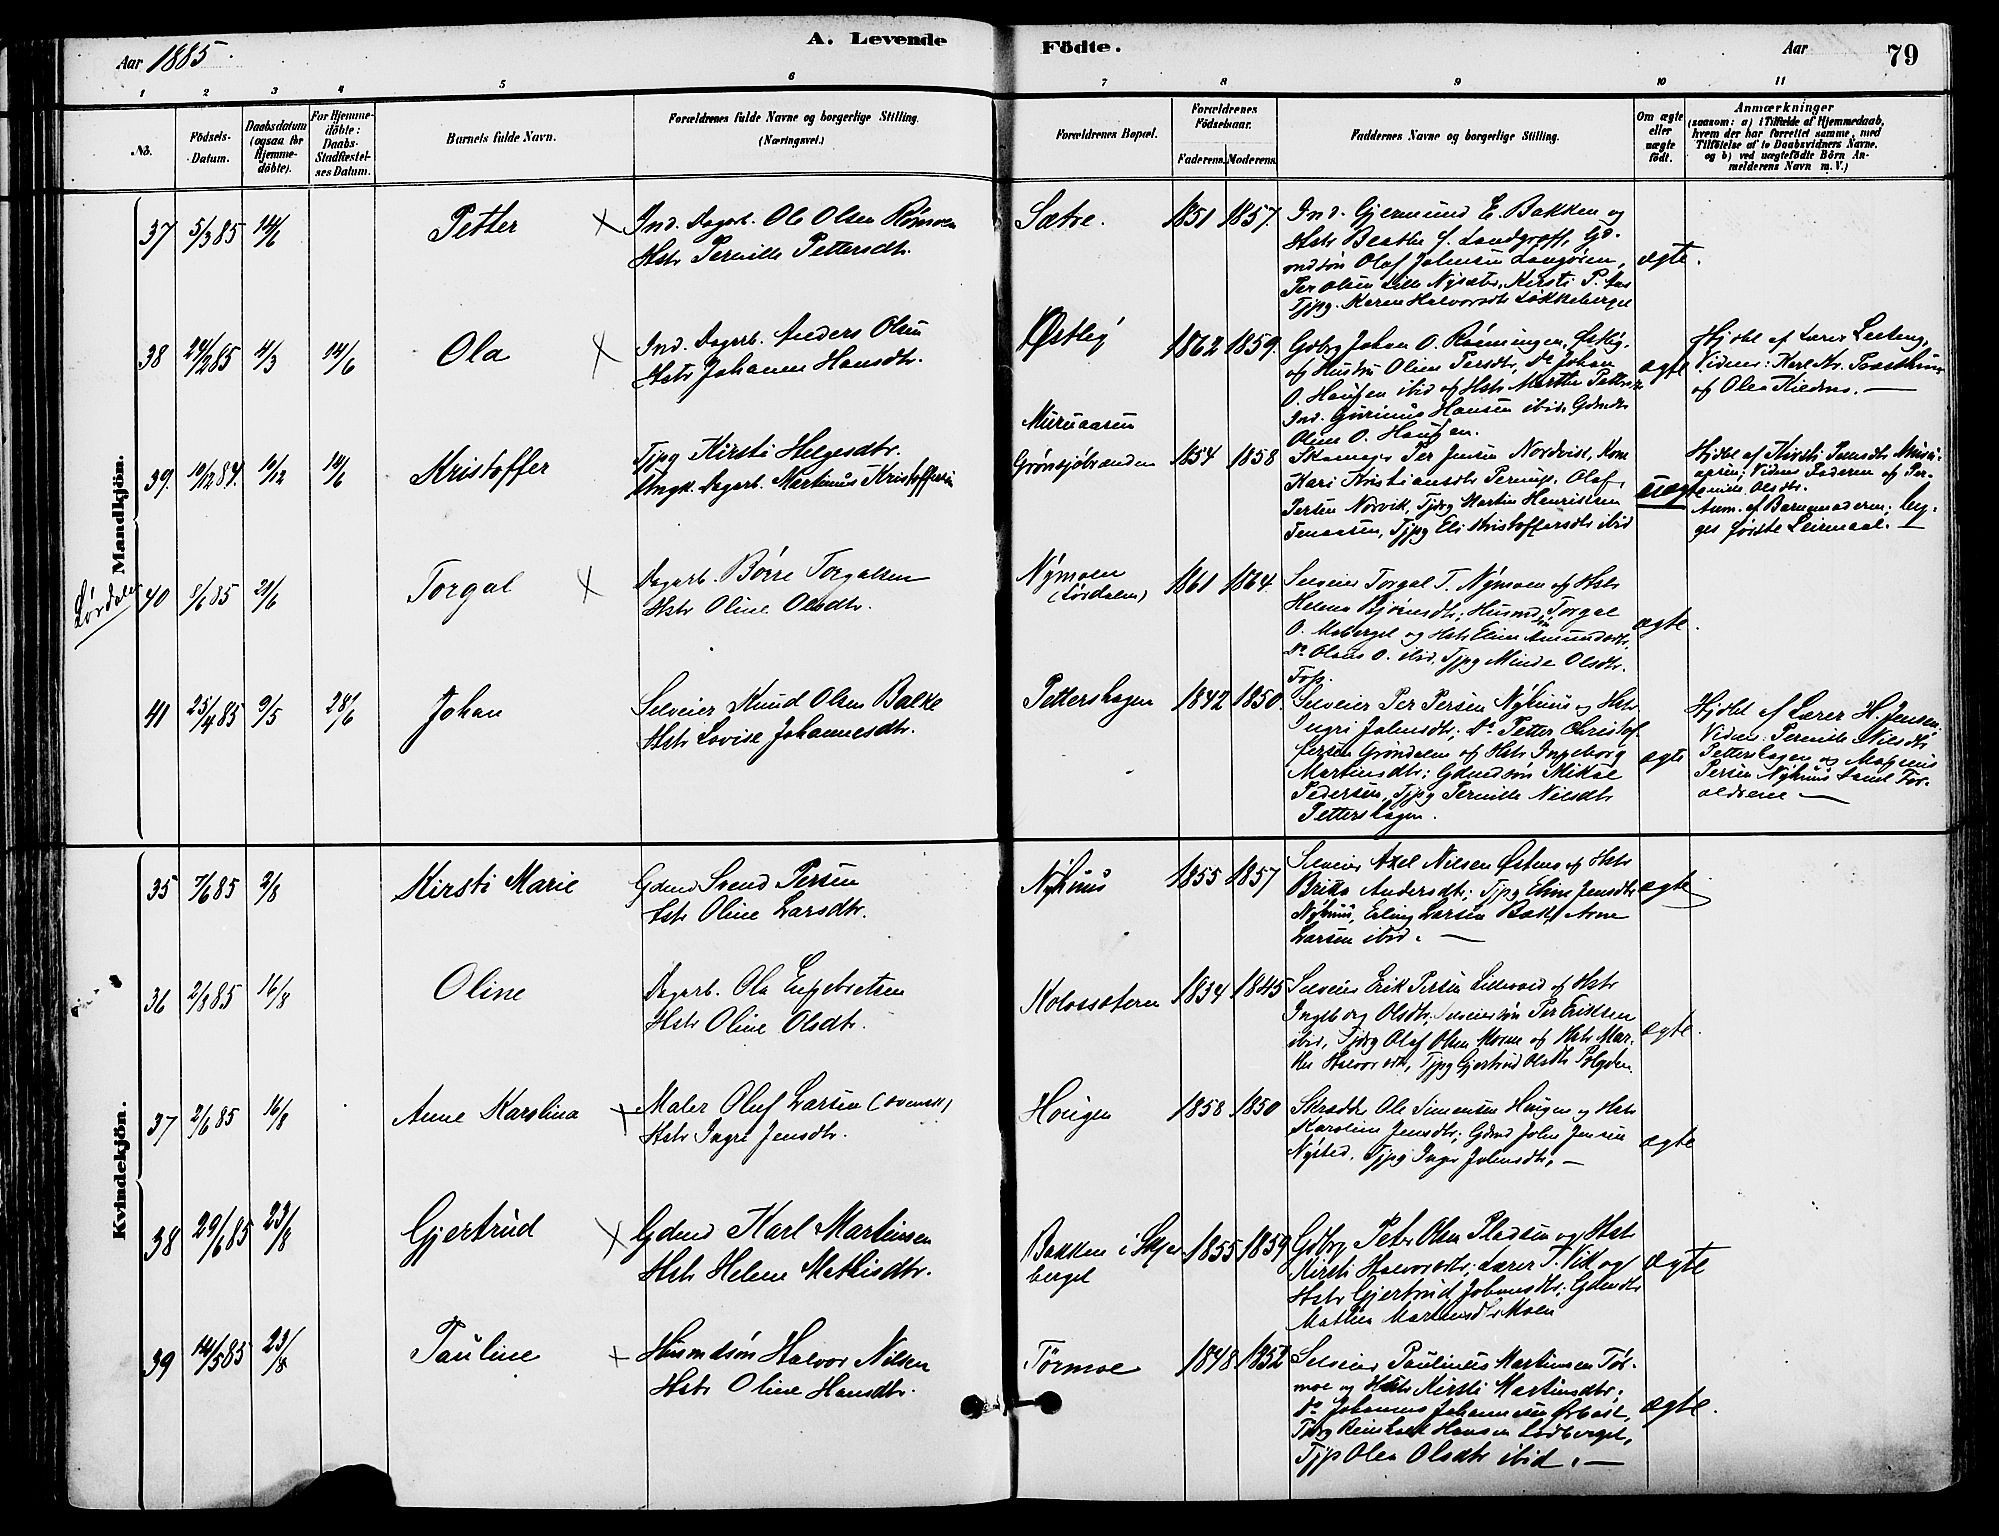 Aar 1885.
A. Levende
Födte.
Aar
79
1
2
3
4
5
6
7
8
9
10
11
No.
Födsels-Datum.
Daabsdatum (ogsaa for Hjemmedöbte).
For Hjemmedöbte: Daabs-Stadfæstelses Datum.
Barnets fulde Navn.
Forældrenes fulde Navne og borgerlige Stilling.
(Næringsvei.)
Forældrenes Bopæl.
Forældrenes Födselsaar.
Faderens. Moderens.
Faddernes Navne og borgerlige Stilling.
Om ægte eller uægte födt.
Anmærkninger
(saasom: a) i Tilfælde af Hjemmedaab,
hvem der har forrettet samme, med
Tilföielse af to Daabsvidners Navne.
og b) ved uægtefödte Börn An-
melderens Navn m. V.)
Mandkjön.
37 5/3 85 14/6 Petter × Ind. Dagarb. Ole Olsen
Hstr Pernille Pettersdtr.
Sætre. 1851 1857.
Ind. Gjermund E. Bakken og
Hstr Beathe
Olaf Johnsen
Per Olsen Lille Nysæter, Kirsti P. Aas
Tjpg. Karen Halvorsdtr Løkkeberget
ægte.
38 24/2 85 4/3 14/6 Ola × Ind. Dagarb. Anders Olsen
Hstr Johanne Hansdtr.
Østby 1862 1859.
Gdbrg Johan O. Rønningen, Østby,
og Hustru Oline Persdtr, Do Johan
O. Haugen ibid og Hstr Marthe Petters
Ind. Hansen ibid, Gdmdtr
Oline O. Haugen.
ægte
Hjdbt af Lærer
Vidner: Karl
og Olea
39. 10/12 84. 10/12 14/6 Kristoffer
Tjpg Kirsti Helgesdtr.
Ungk. Dagarb. Martinus Kristoffersen
Muruaasen
Grønsjøbranden 1854 1858
Per Jensen Nordvik, Kone
Kari Kristiansdtr Olaf
Persen Norvik, Tjdrg Martin Henriksen
Tjpg Eli Kristoffersdtr ibid
uægte
Hjdbt af Kirsti
Vidner Faderen og Per-
nille Olsdtr.
Anm. af Barnemoderen; beg-
ges første Leiermaal.
Lørdalen
40 5/6 85 21/6 Torgal × Dagarb. Børre Torgalsen
Hstr Oline Olsdtr.
Nymoen
(Lørdalen) 1861 1864.
Selveier Torgal T. Nymoen og Hstr
Helene Bjørnsdtr; Husmd Torgal
O. Moberget og Hstr Eline Amundsdtr,
Do Olaus O. ibid, Tjpg Minde Olsdtr.
Foss.
ægte.
41 25/4 85 9/5 28/6 Johan
Selveier Knud Olsen Balke
Hstr Lovise Johannesdtr.
Pettershagen 1842 1850.
Selveier Per Persen Nyhuus og Hstr
Ingri Johnsdtr. Do Petter Christof
fersen Grøndalen og Hstr Ingeborg
Martinsdtr; Gdmdsøn Mikal
Pedersen, Tjpg Pernille Nilsdtr
Pettershagen.
ægte
Hjdbt af Lærer H. Jensen
Vidner: Pernille Nilsdtr
Pettershagen og Magnus
Persen Nyhuus samt For-
ældrene —
Kvindekjön.
35 7/6 85 2/8 Kirsti Marie
Gdmd Svend Persen
Hstr Oline Larsdtr.
Nyhuus 1855 1857
Selveier Axel Nilsen Østens og Hstr
Brite Andersdtr; Tjpg Eline Jensdtr
Nyhuus, Erling Larsen Bakk, Arne
Larsen ibid. —
ægte
36 2/8 85 16/8 Oline
Dagarb. Ole Engebretsen
Hstr Oline Olsdtr.
Kolossæteren 1834 1845
Selveier Erik Persen Lillevold og Hstr
Ingeborg Olsdtr, Selveiersøn Per Eriksen
ibid, Tjdrg Olaf Olsen Moren og Hstr Mar-
the Halvorsdtr, Tjpg Gjertrud Olsdtr
ægte.
37 2/6 85 16/8 Anne Karolina × Maler Oluf Larsen (svensk)
Hstr Ingri Jensdtr.
Hougen 1858 1850
Skrædder Ole Simensen Hougen og Hstr
Karoline Jensdtr; Gdmd John Jensen
Nysted. Tjpg Inger Johnsdtr. —
ægte
38 29/6 85 23/8 Gjertrud × Gdmd Karl Martinsen
Hstr Helene Mathisdtr.
Bakken i Skjær
berget 1855 1859
Gdbrg Peter Olsen Pladsen og Hstr
Kirsti Halvorsdtr; Lærer T. Vik og
Hstr Gjertrud Johnsdtr; Gdmdtr
Mathea Martinsdtr Moen
ægte
39 14/5 85 23/8 Pauline × Husmdsøn Halvor Nilsen
Hstr Oline Hansdtr.
Tørmoe 1848 1852
Selveier Paulinus Martinsen Tør-
moe og Hstr Kirsti Martinsdtr;
Do Johannes Johannesen
Tjdrg Reinhart Hansen Lødberget,
Tjpg Olea Olsdtr ibid. —
ægte.